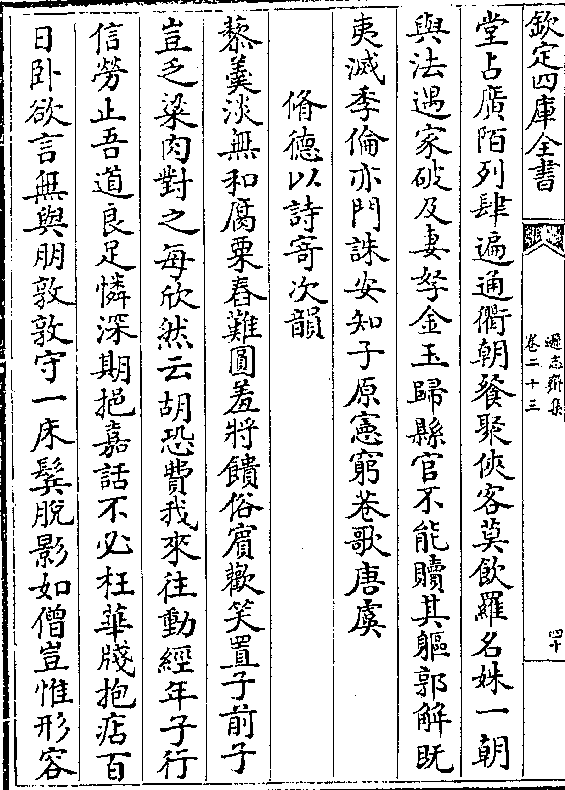 欽定四庫全書
遜志齋集
卷二十三
四十
堂占廣陌列肆遍通衢朝飱聚俠客莫飲羅名姝一朝
與法遇家破及妻孥金玉歸縣官不能贖其軀郭解既
夷滅季倫亦門誅安知子原憲窮巷歌唐虞
脩德以詩寄次韻
藜羮淡無和腐粟舂難圓羞將饋俗賓歡笑置子前子
豈乏粱肉對之每欣然云胡恐費我來往動經年子行
信勞止吾道良足憐深期挹嘉話不必枉華牋抱㾀百
日卧欲言無與朋敦敦守一床鬓脱影如僧豈惟形容